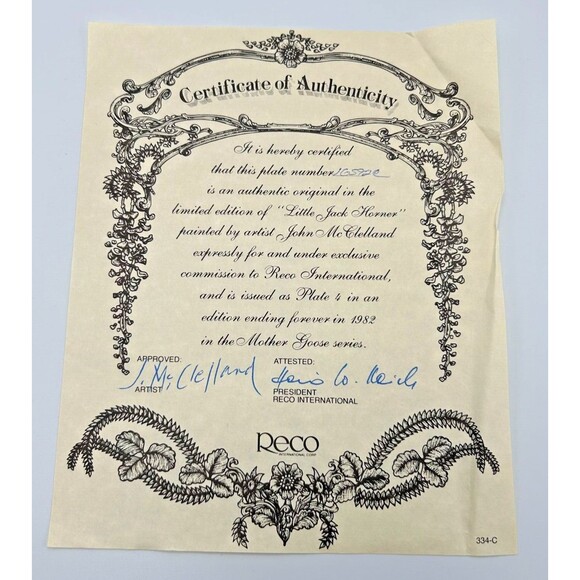 Certificate of Authenticity
It is hereby certified
that this plate number
is an authentic original in the
limited edition of "Little Jack Horner"
painted by artist John McClelland
expressly for and under exclusive
commission to Reco International,
and is issued as Plate 4 in an
edition ending forever in 1982
in the Mother Goose series.
APPROVED: ATTESTED:
J. McClelland
ARTIST PRESIDENT
RECO INTERNATIONAL
Reco
INTERNATIONAL CORP.
334-C